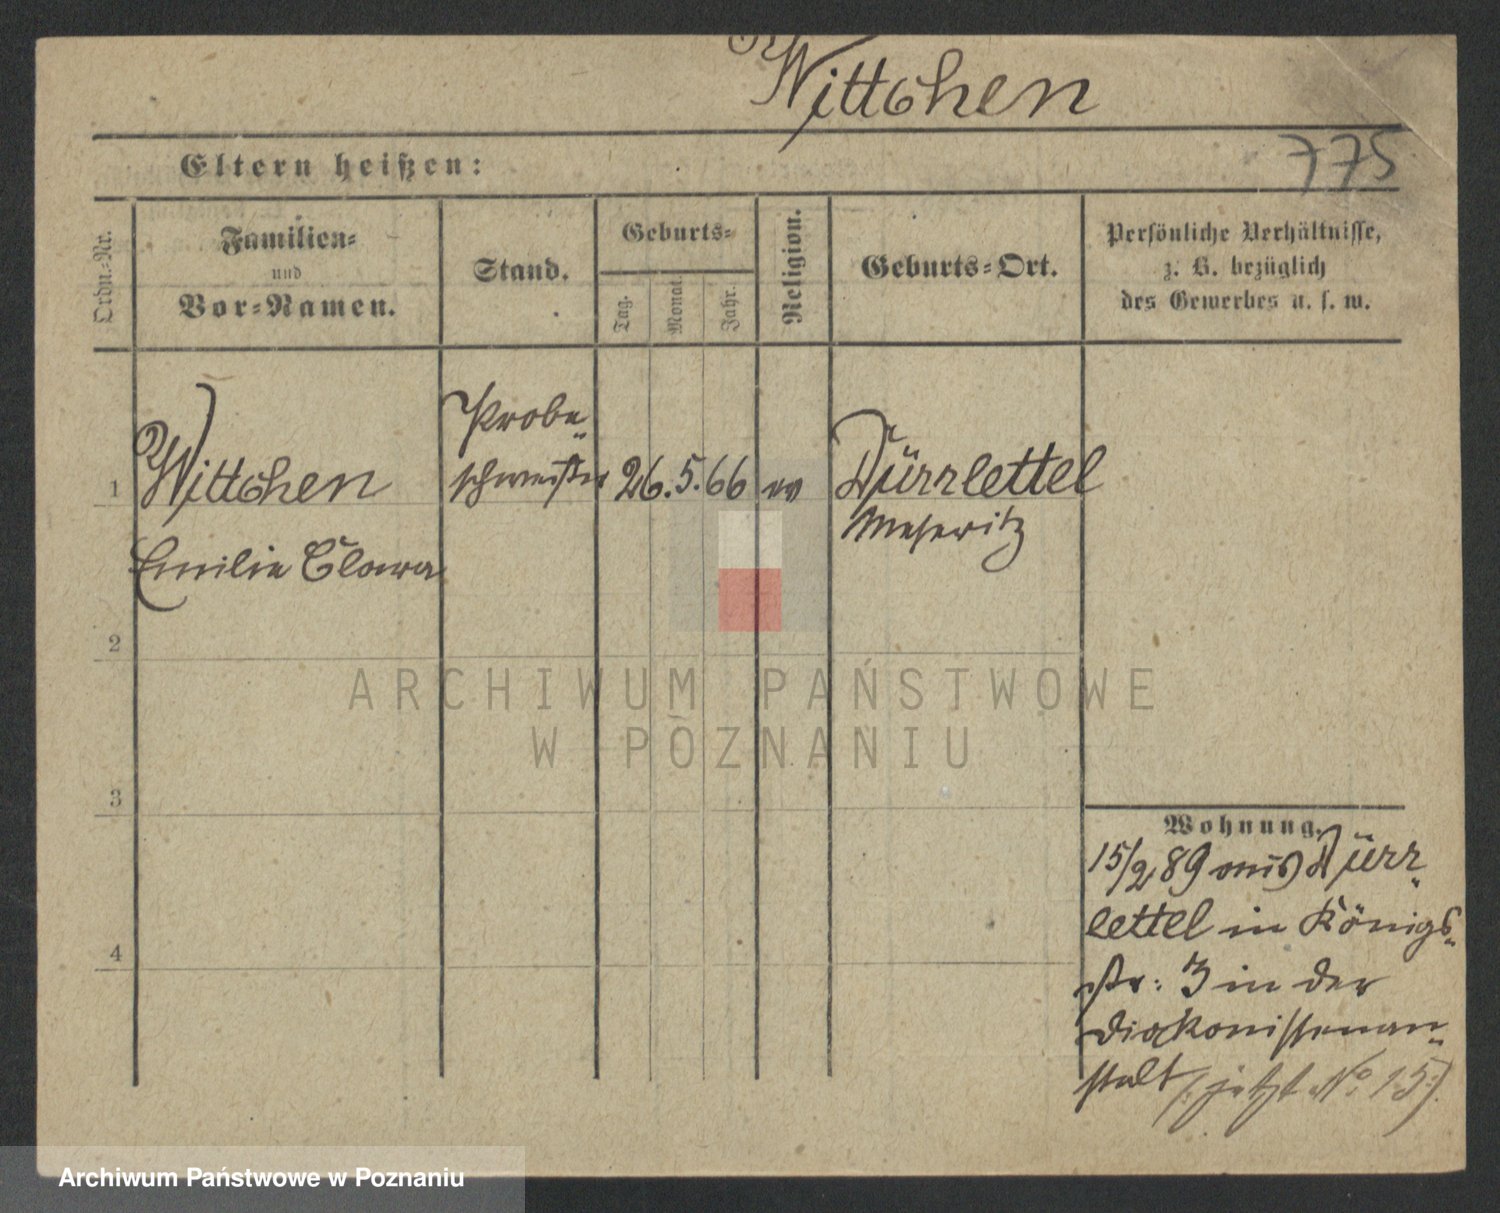 Wittchen
775
Eltern heißen:
Ordn.-Nr.
Familien-
und
Vor-Namen.
Stand.
Geburts-
Tag.
Monat.
Jahr.
Religion.
Geburts-Ort.
Persönliche Verhältnisse,
z. B. bezüglich
des Gewerbes u. s. w.
Probe-
schwester
1 Wittchen 26. 5. 66 ev Dürrlettel
Meseritz
Emilie
2
ARCHIWUM PAŃSTWOWE
W POZNANIU
3
Wohnung.
15/2 89 aus Dürr-
lettel in Königs-
str: 3 in der
Diakonissenan-
stalt (: jetzt No 15:)
4
Archiwum Państwowe w Poznaniu